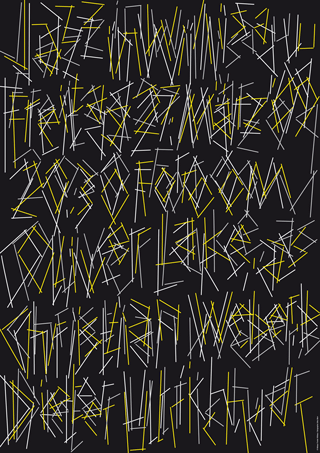 Jazz in Willisau
Freitag 27. März 09
20.30 Foroom
Oliver Lake as
Christian Weber b
Dieter Ulrich dr